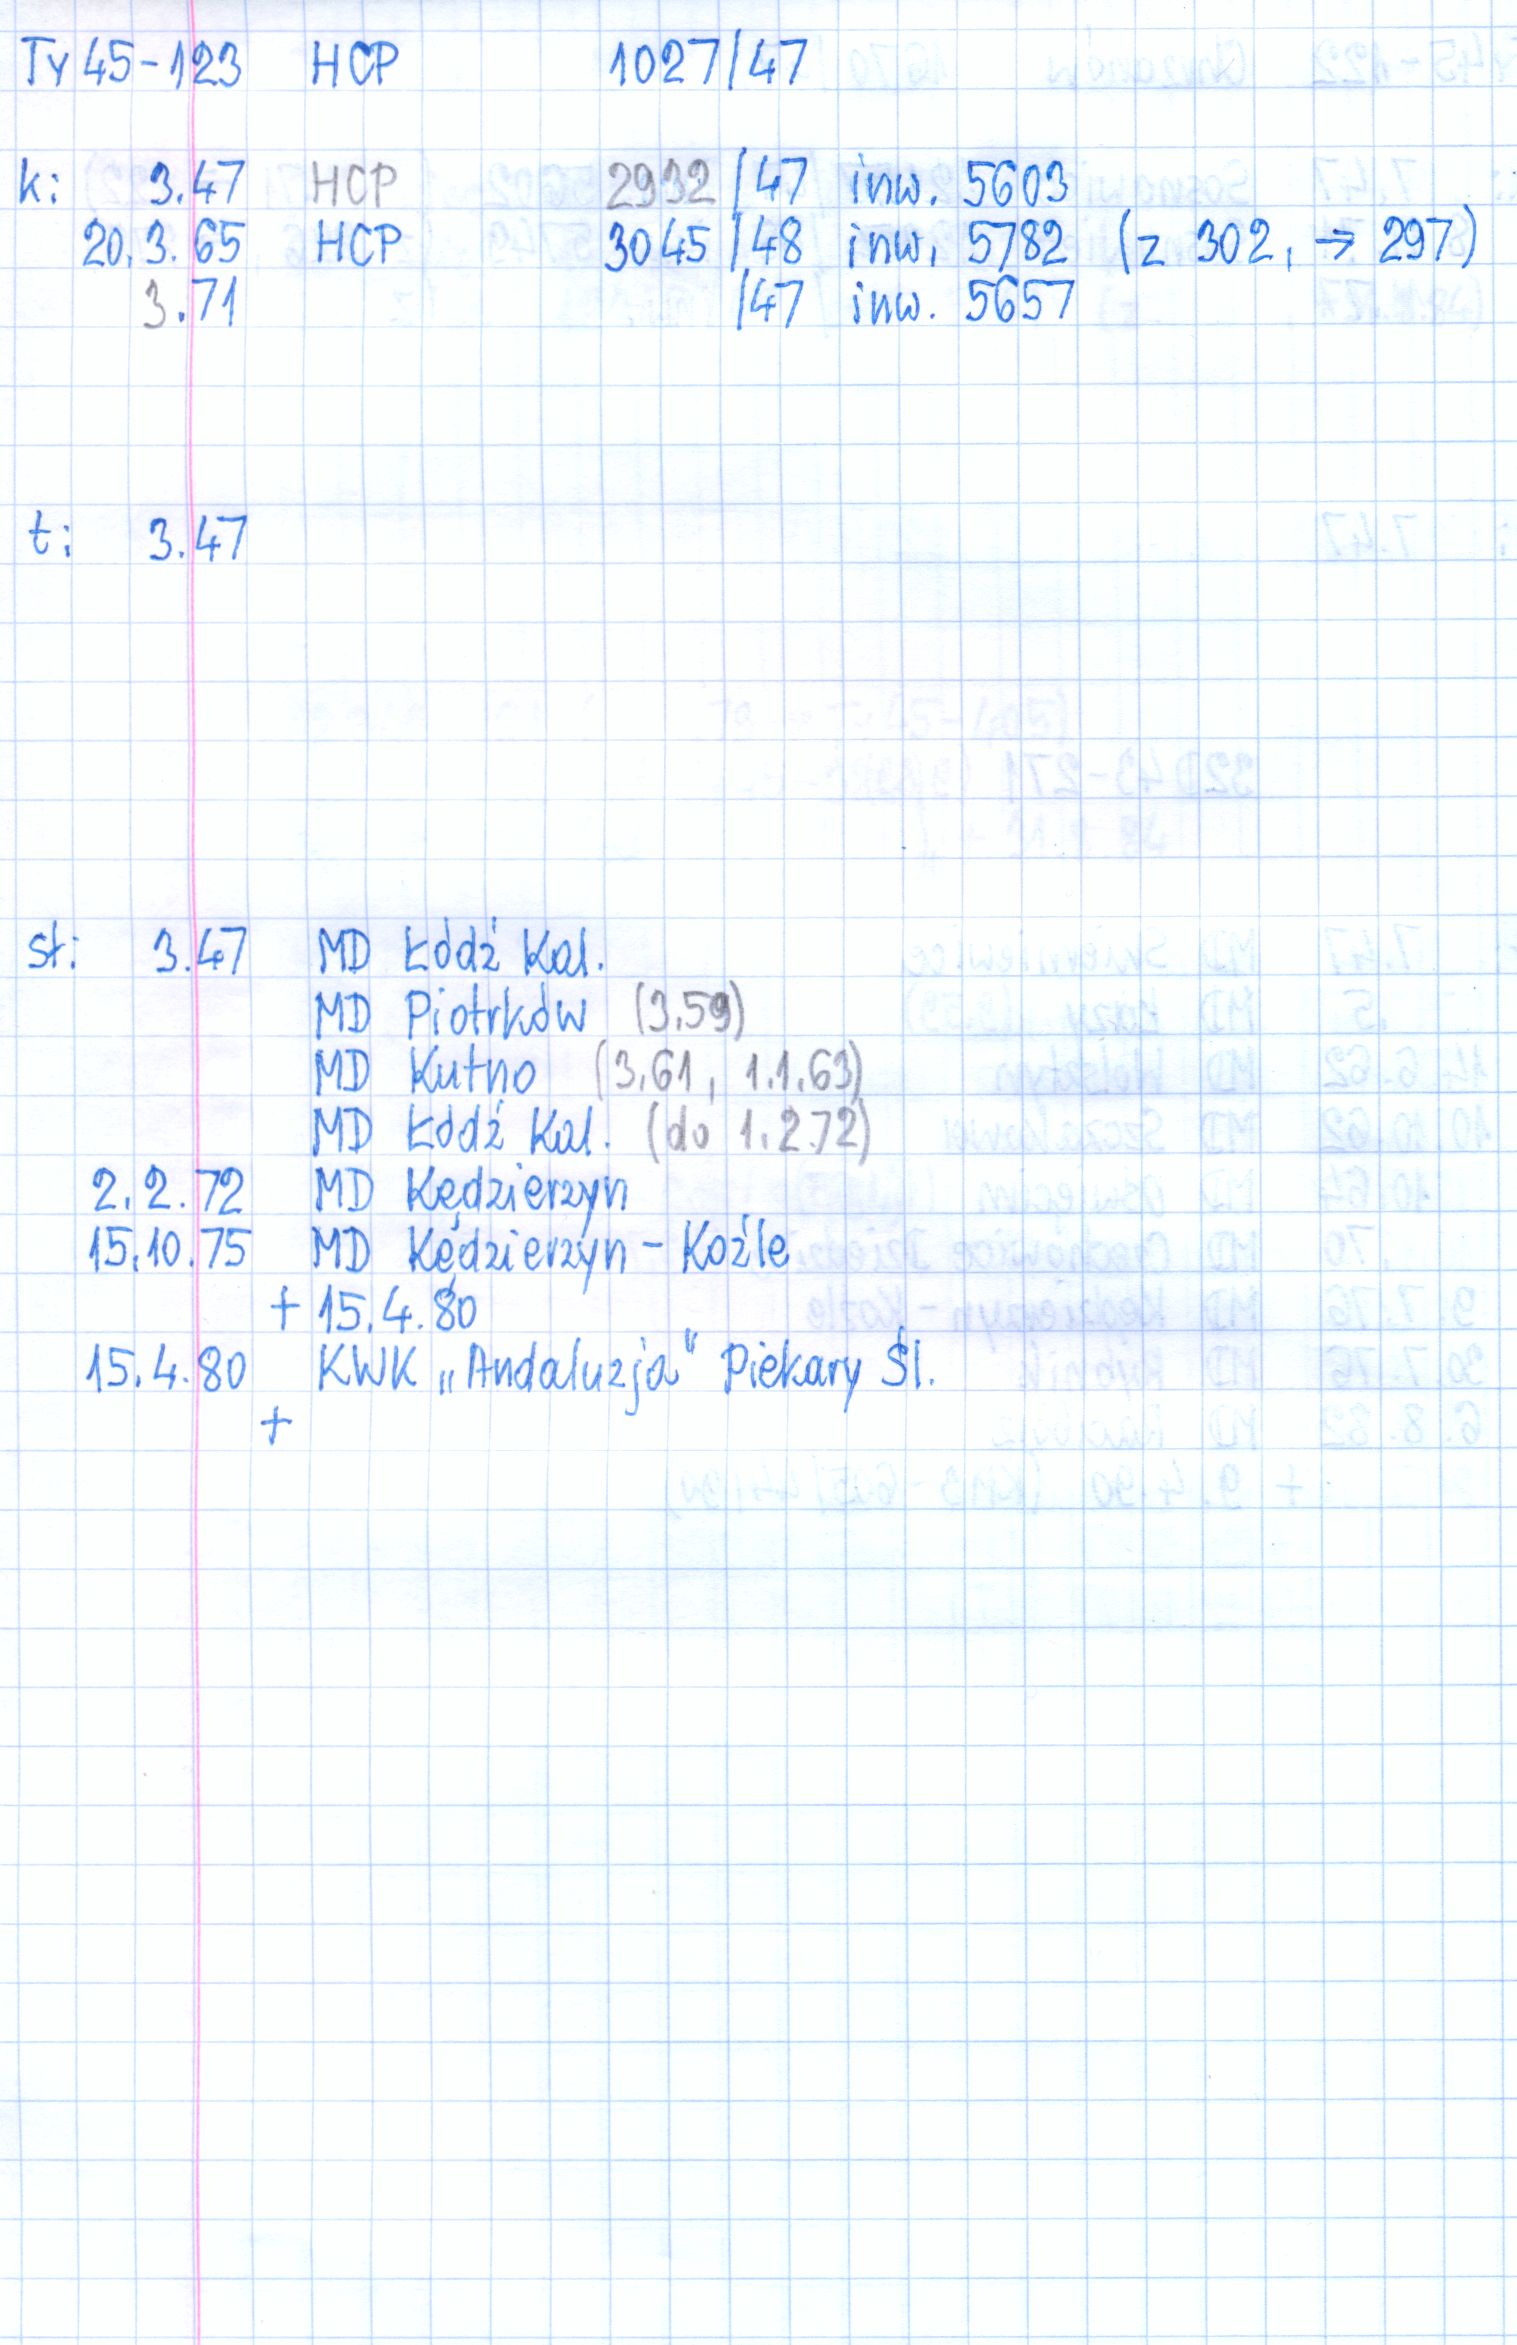 Ty45-123 HCP 1027/47
k: 3.47 HCP 2932/47 inw. 5603
20.3.65 HCP 3045/48 inw. 5782 (z 302, → 297)
3.71 /47 inw. 5657
t: 3.47
st: 3.47 MD Łódź Kal.
MD Piotrków (3.59)
MD Kutno (3.61, 1.1.63)
MD Łódź Kal. (do 1.2.72)
2.2.72 MD Kędzierzyn
15.10.75 MD Kędzierzyn-Koźle
+ 15.4.80
15.4.80 KWK „Andaluzja” Piekary Śl.
+